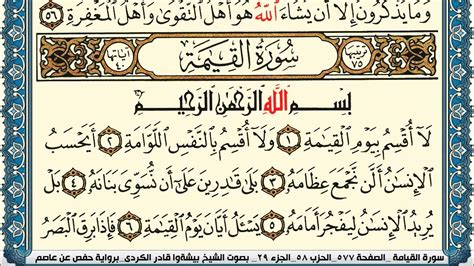 وَمَا يَذْكُرُونَ إِلَّا أَن يَشَاءَ اللَّهُ هُوَ أَهْلُ التَّقْوَىٰ وَأَهْلُ الْمَغْفِرَةِ ٥٦
ترتيبها ٧٥ سُورَةُ الْقِيَامَة آياتها ٤٠
بِسْمِ اللَّهِ الرَّحْمَٰنِ الرَّحِيمِ
لَا أُقْسِمُ بِيَوْمِ الْقِيَٰمَةِ ١ وَلَا أُقْسِمُ بِالنَّفْسِ اللَّوَّامَةِ ٢ أَيَحْسَبُ
الْإِنسَٰنُ أَلَّن نَّجْمَعَ عِظَامَهُ ٣ بَلَىٰ قَٰدِرِينَ عَلَىٰ أَن نُّسَوِّيَ بَنَانَهُ ٤ بَلْ
يُرِيدُ الْإِنسَٰنُ لِيَفْجُرَ أَمَامَهُ ٥ يَسْـَٔلُ أَيَّانَ يَوْمُ الْقِيَٰمَةِ ٦ فَإِذَا بَرِقَ الْبَصَرُ
سورة القيامة _ الصفحة ٥٧٧_ الحزب ٥٨_ الجزء ٢٩ _ بصوت الشيخ بيشةوا قادر الكردى_ برواية حفص عن عاصم